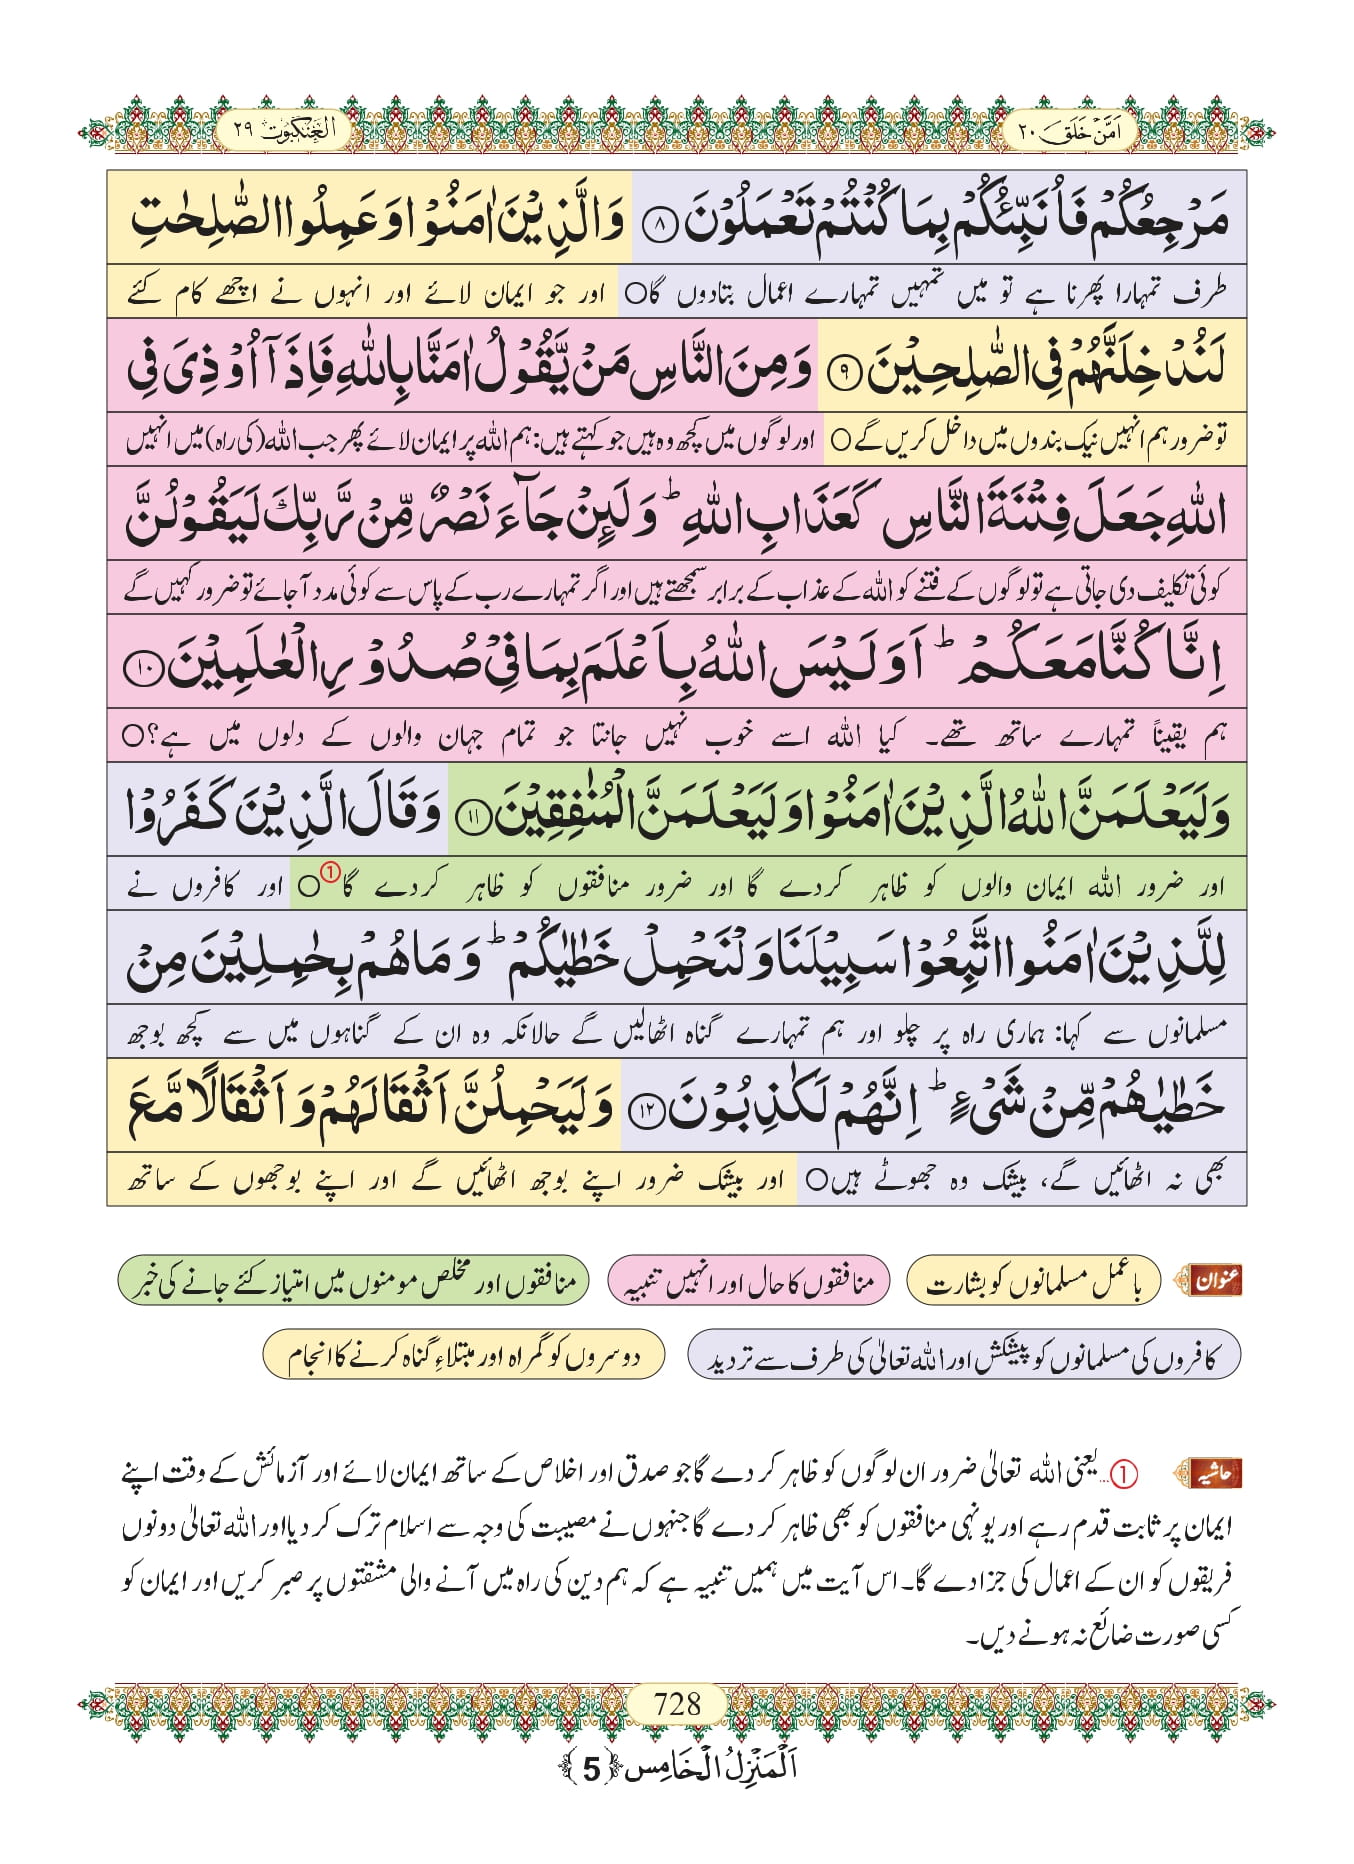 اَمَّنْ خَلَقَ ٢٠
الْعَنْكَبُوْت ٢٩
مَرْجِعُكُمْ فَاُنَبِّئُكُمْ بِمَا كُنْتُمْ تَعْمَلُوْنَ ﴿٨﴾ وَالَّذِيْنَ اٰمَنُوْا وَعَمِلُوا الصّٰلِحٰتِ
طرف تمہارا پھرنا ہے تو میں تمہیں تمہارے اعمال بتادوں گا○ اور جو ایمان لائے اور انہوں نے اچھے کام کئے
لَنُدْخِلَنَّهُمْ فِي الصّٰلِحِيْنَ ﴿٩﴾ وَمِنَ النَّاسِ مَنْ يَّقُوْلُ اٰمَنَّا بِاللّٰهِ فَاِذَاۤ اُوْذِيَ فِي
تو ضرور ہم انہیں نیک بندوں میں داخل کریں گے○ اور لوگوں میں کچھ وہ ہیں جو کہتے ہیں: ہم اللہ پر ایمان لائے پھر جب اللہ (کی راہ) میں انہیں
اللّٰهِ جَعَلَ فِتْنَةَ النَّاسِ كَعَذَابِ اللّٰهِ ؕ وَلَئِنْ جَآءَ نَصْرٌ مِّنْ رَّبِّكَ لَيَقُوْلُنَّ
کوئی تکلیف دی جاتی ہے تو لوگوں کے فتنے کو اللہ کے عذاب کے برابر سمجھتے ہیں اور اگر تمہارے رب کے پاس سے کوئی مدد آجائے تو ضرور کہیں گے
اِنَّا كُنَّا مَعَكُمْ ؕ اَوَلَيْسَ اللّٰهُ بِاَعْلَمَ بِمَا فِيْ صُدُوْرِ الْعٰلَمِيْنَ ﴿١٠﴾
ہم یقیناً تمہارے ساتھ تھے۔ کیا اللہ اسے خوب نہیں جانتا جو تمام جہان والوں کے دلوں میں ہے؟○
وَلَيَعْلَمَنَّ اللّٰهُ الَّذِيْنَ اٰمَنُوْا وَلَيَعْلَمَنَّ الْمُنٰفِقِيْنَ ﴿١١﴾ وَقَالَ الَّذِيْنَ كَفَرُوْا
اور ضرور اللہ ایمان والوں کو ظاہر کردے گا اور ضرور منافقوں کو ظاہر کردے گا○① اور کافروں نے
لِلَّذِيْنَ اٰمَنُوا اتَّبِعُوْا سَبِيْلَنَا وَلْنَحْمِلْ خَطٰيٰكُمْ ؕ وَمَا هُمْ بِحٰمِلِيْنَ مِنْ
مسلمانوں سے کہا: ہماری راہ پر چلو اور ہم تمہارے گناہ اٹھالیں گے حالانکہ وہ ان کے گناہوں میں سے کچھ بوجھ
خَطٰيٰهُمْ مِّنْ شَيْءٍ ؕ اِنَّهُمْ لَكٰذِبُوْنَ ﴿١٢﴾ وَلَيَحْمِلُنَّ اَثْقَالَهُمْ وَاَثْقَالًا مَّعَ
بھی نہ اٹھائیں گے، بیشک وہ جھوٹے ہیں○ اور بیشک ضرور اپنے بوجھ اٹھائیں گے اور اپنے بوجھوں کے ساتھ
عنوان باعمل مسلمانوں کو بشارت منافقوں کا حال اور انہیں تنبیہ منافقوں اور مخلص مومنوں میں امتیاز کئے جانے کی خبر
کافروں کی مسلمانوں کو پیشکش اور اللہ تعالیٰ کی طرف سے تردید دوسروں کو گمراہ اور مبتلاءِ گناہ کرنے کا انجام
حاشیہ ①…یعنی اللہ تعالیٰ ضرور ان لوگوں کو ظاہر کر دے گا جو صدق اور اخلاص کے ساتھ ایمان لائے اور آزمائش کے وقت اپنے
ایمان پر ثابت قدم رہے اور یونہی منافقوں کو بھی ظاہر کر دے گا جنہوں نے مصیبت کی وجہ سے اسلام ترک کر دیا اور اللہ تعالیٰ دونوں
فریقوں کو ان کے اعمال کی جزا دے گا۔ اس آیت میں ہمیں تنبیہ ہے کہ ہم دین کی راہ میں آنے والی مشقتوں پر صبر کریں اور ایمان کو
کسی صورت ضائع نہ ہونے دیں۔
728
اَلْمَنْزِلُ الْخَامِس ﴿5﴾